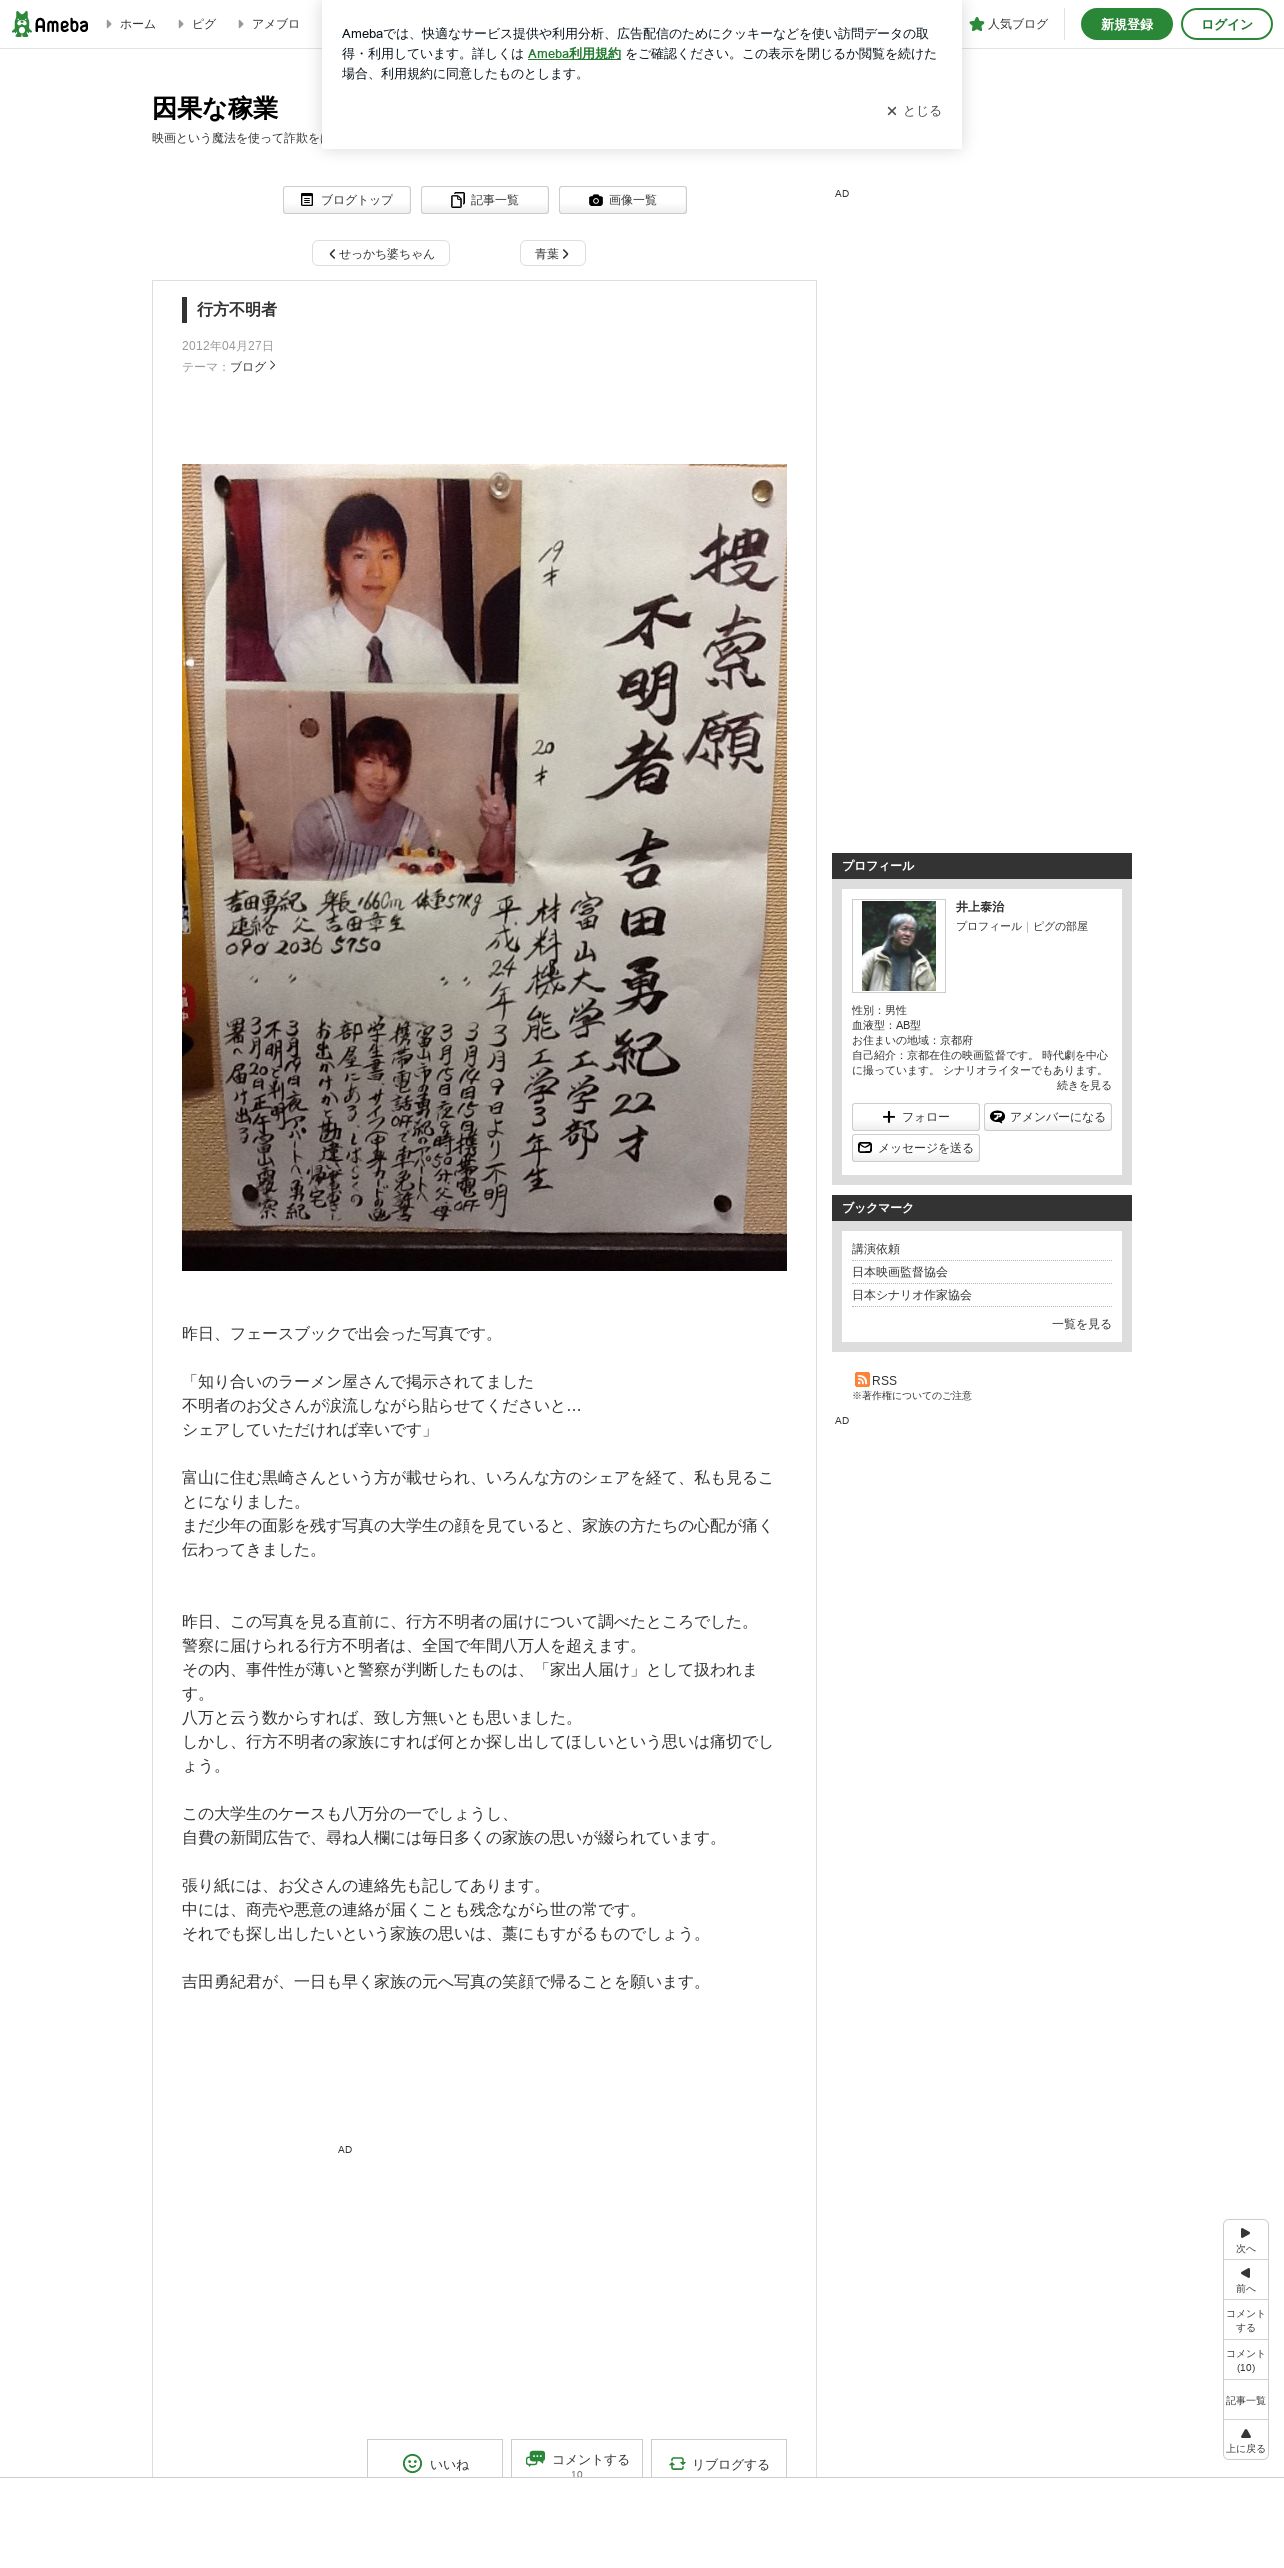 Ameba
ホーム
ピグ
アメブロ
Amebaでは、快適なサービス提供や利用分析、広告配信のためにクッキーなどを使い訪問データの取
得・利用しています。詳しくは Ameba利用規約 をご確認ください。この表示を閉じるか閲覧を続けた
場合、利用規約に同意したものとします。
とじる
人気ブログ
新規登録
ログイン
因果な稼業
映画という魔法を使って詐欺を
ブログトップ
記事一覧
画像一覧
AD
せっかち婆ちゃん
青葉
行方不明者
2012年04月27日
テーマ：ブログ
捜索願
不明者 吉田勇紀 22才
19才
20才
富山大学工学部
材料機能工学3年生
吉田勇紀 身長166cm 体重57kg
連絡 父 吉田章生
090 2036 5750
平成24年
3月15日夜9時50分父母
昨日、フェースブックで出会った写真です。
「知り合いのラーメン屋さんで掲示されてました
不明者のお父さんが涙流しながら貼らせてくださいと…
シェアしていただければ幸いです」
富山に住む黒崎さんという方が載せられ、いろんな方のシェアを経て、私も見るこ
とになりました。
まだ少年の面影を残す写真の大学生の顔を見ていると、家族の方たちの心配が痛く
伝わってきました。
昨日、この写真を見る直前に、行方不明者の届けについて調べたところでした。
警察に届けられる行方不明者は、全国で年間八万人を超えます。
その内、事件性が薄いと警察が判断したものは、「家出人届け」として扱われま
す。
八万と云う数からすれば、致し方無いとも思いました。
しかし、行方不明者の家族にすれば何とか探し出してほしいという思いは痛切でし
ょう。
この大学生のケースも八万分の一でしょうし、
自費の新聞広告で、尋ね人欄には毎日多くの家族の思いが綴られています。
張り紙には、お父さんの連絡先も記してあります。
中には、商売や悪意の連絡が届くことも残念ながら世の常です。
それでも探し出したいという家族の思いは、藁にもすがるものでしょう。
吉田勇紀君が、一日も早く家族の元へ写真の笑顔で帰ることを願います。
AD
いいね
コメントする
10
リブログする
プロフィール
井上泰治
プロフィール｜ピグの部屋
性別：男性
血液型：AB型
お住まいの地域：京都府
自己紹介：京都在住の映画監督です。 時代劇を中心
に撮っています。 シナリオライターでもあります。
続きを見る
フォロー
アメンバーになる
メッセージを送る
ブックマーク
講演依頼
日本映画監督協会
日本シナリオ作家協会
一覧を見る
RSS
※著作権についてのご注意
AD
次へ
前へ
コメント
する
コメント
(10)
記事一覧
上に戻る